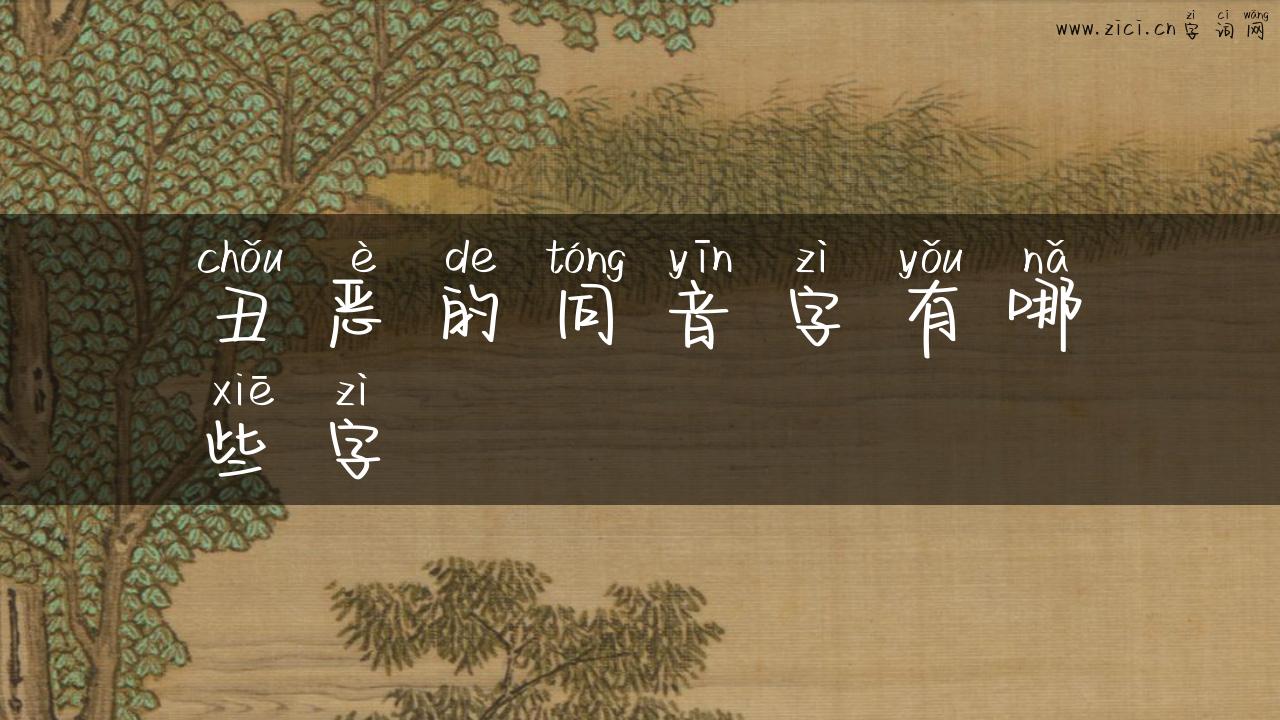 zì cí wǎng
www.zici.cn字词网
chǒu è de tóng yīn zì yǒu nǎ
丑恶的同音字有哪
xiē zì
些字